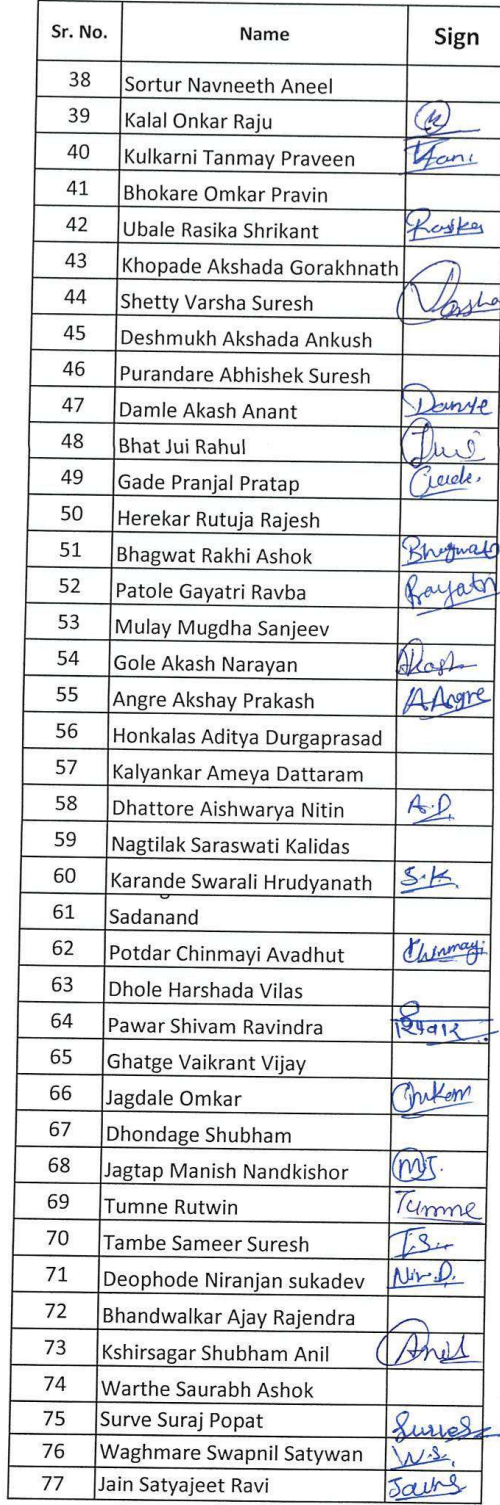 Sr. No. Name Sign
38 Sortur Navneeth Aneel
39 Kalal Onkar Raju
40 Kulkarni Tanmay Praveen
41 Bhokare Omkar Pravin
42 Ubale Rasika Shrikant
43 Khopade Akshada Gorakhnath
44 Shetty Varsha Suresh Varsha
45 Deshmukh Akshada Ankush
46 Purandare Abhishek Suresh
47 Damle Akash Anant
48 Bhat Jui Rahul Jui
49 Gade Pranjal Pratap Gade.
50 Herekar Rutuja Rajesh
51 Bhagwat Rakhi Ashok Bhagwat
52 Patole Gayatri Ravba Gayatri
53 Mulay Mugdha Sanjeev
54 Gole Akash Narayan Akash
55 Angre Akshay Prakash A.Angre
56 Honkalas Aditya Durgaprasad
57 Kalyankar Ameya Dattaram
58 Dhattore Aishwarya Nitin A.D.
59 Nagtilak Saraswati Kalidas
60 Karande Swarali Hrudyanath S.K.
61 Sadanand
62 Potdar Chinmayi Avadhut Chinmayi
63 Dhole Harshada Vilas
64 Pawar Shivam Ravindra
65 Ghatge Vaikrant Vijay
66 Jagdale Omkar
67 Dhondage Shubham
68 Jagtap Manish Nandkishor MJ.
69 Tumne Rutwin Tumne
70 Tambe Sameer Suresh T.S.
71 Deophode Niranjan sukadev Nir.D.
72 Bhandwalkar Ajay Rajendra
73 Kshirsagar Shubham Anil Anil
74 Warthe Saurabh Ashok
75 Surve Suraj Popat
76 Waghmare Swapnil Satywan W.S.
77 Jain Satyajeet Ravi